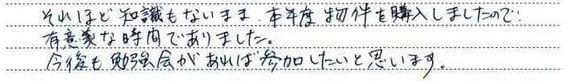 それほど知識もないまま、本年度物件を購入しましたので、
有意義な時間でありました。
今後も勉強会があれば参加したいと思います。